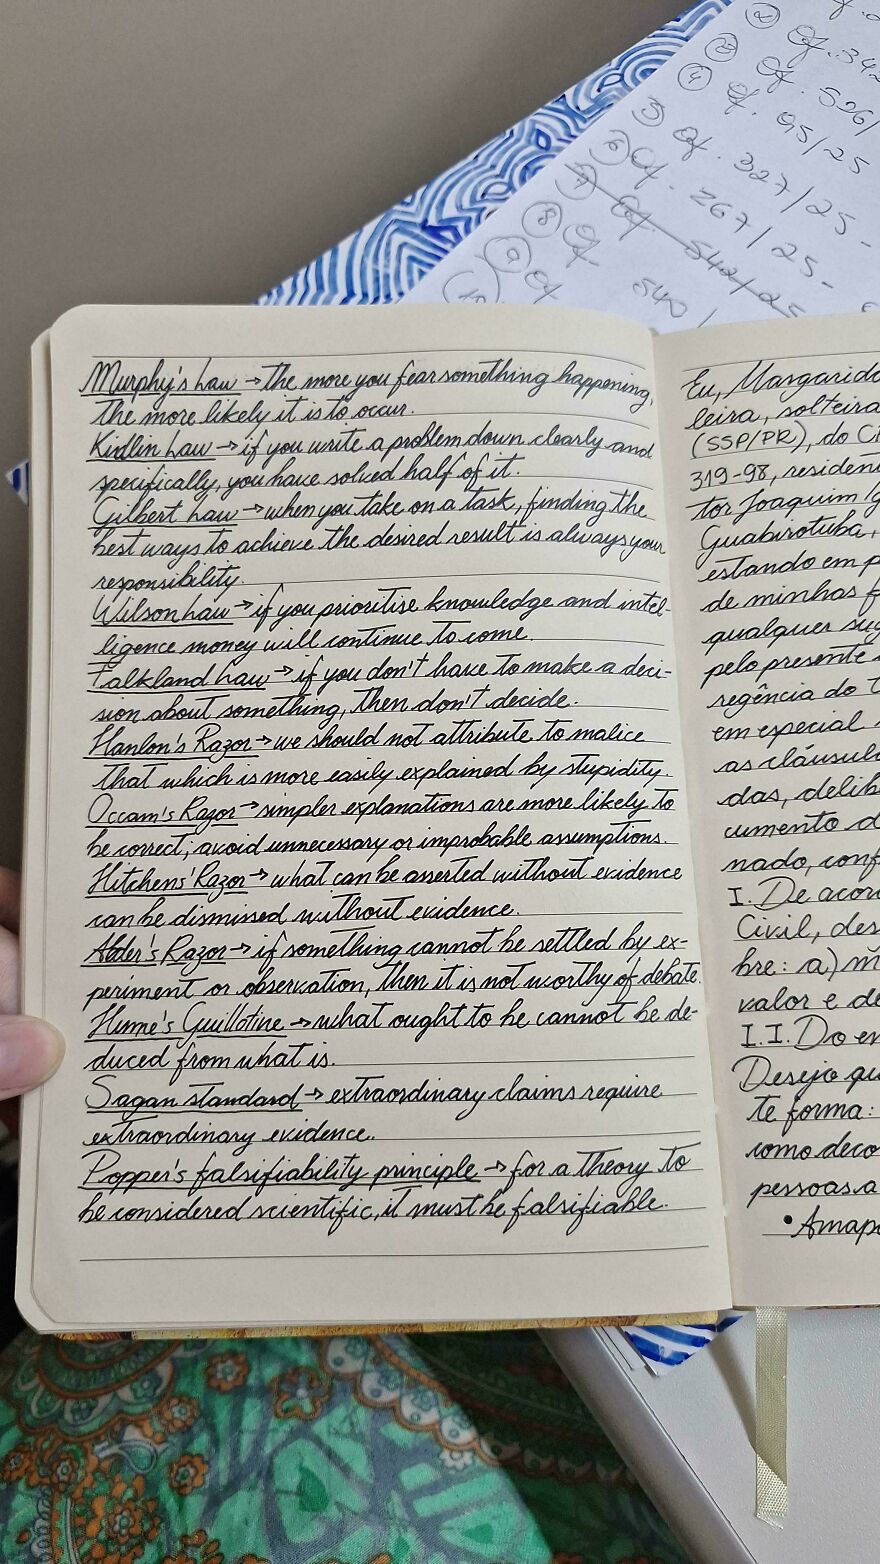 Murphy's Law → the more you fear something happening,
the more likely it is to occur.
Kidlin Law → if you write a problem down clearly and
specifically, you have solved half of it.
Gilbert Law → when you take on a task, finding the
best ways to achieve the desired result is always your
responsibility.
Wilson Law → if you prioritise knowledge and intel-
ligence money will continue to come.
Falkland Law → if you don't have to make a deci-
sion about something, then don't decide.
Hanlon's Razor → we should not attribute to malice
that which is more easily explained by stupidity.
Occam's Razor → simpler explanations are more likely to
be correct; avoid unnecessary or improbable assumptions.
Hitchens' Razor → what can be asserted without evidence
can be dismissed without evidence.
Alder's Razor → if something cannot be settled by ex-
periment or observation, then it is not worthy of debate.
Hume's Guillotine → what ought to be cannot be de-
duced from what is.
Sagan standard → extraordinary claims require
extraordinary evidence.
Popper's falsifiability principle → for a theory to
be considered scientific, it must be falsifiable.
Eu, Margarida
leira, solteira
(SSP/PR), do
319-98,
tor Joaquim
Guabirotuba,
estando em
de minhas
qualquer
pelo presente
regência do
em especial
as
das,
cumento
nado,
I. De
Civil,
bre: a)
valor e
I.I. Do
Desejo
te forma:
como
pessoas a
•
2
Of. 342
3 Of. 526/
4 Of. 95/25
5 Of. 327/25-
6 Of. 267/25-
7 Of. 542/25
8 Of. 540/
9 Of
10